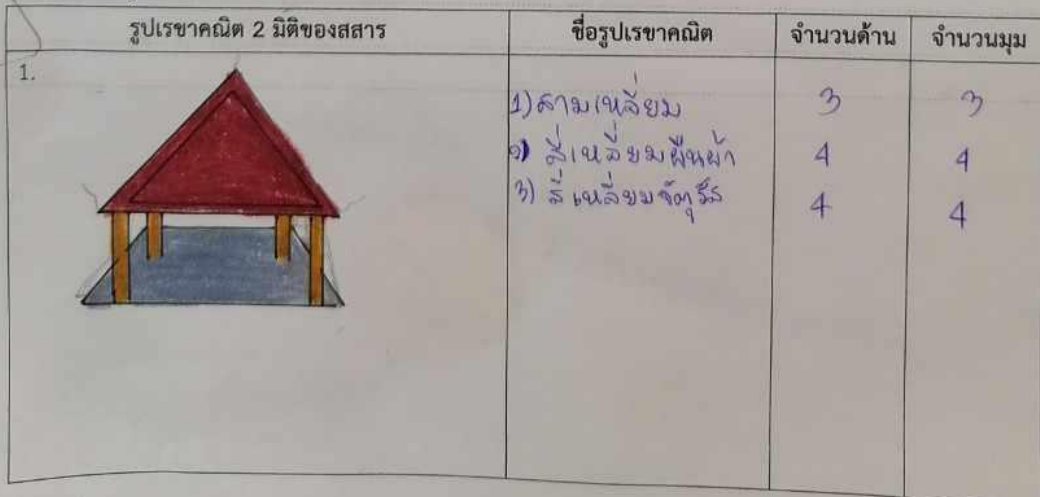 รูปเรขาคณิต 2 มิติของสสาร ชื่อรูปเรขาคณิต จำนวนด้าน จำนวนมุม
1.
1) สามเหลี่ยม 3 3
2) สี่เหลี่ยมผืนผ้า 4 4
3) สี่เหลี่ยมจัตุรัส 4 4